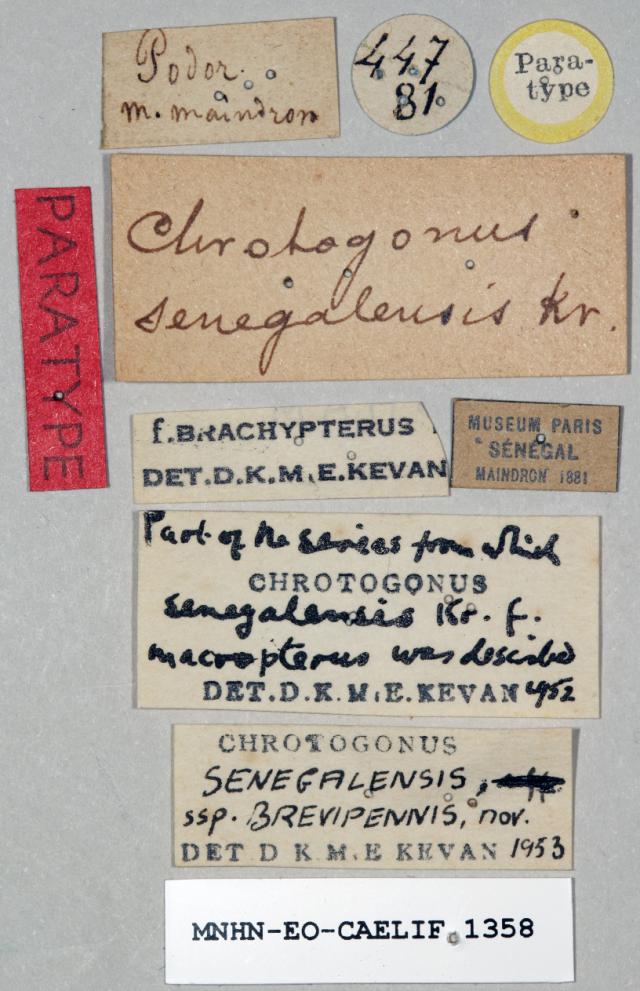 Podor.
M. Maindron
447
81.
Para-
type
Chrotogonus
senegalensis Kr.
PARATYPE
f.BRACHYPTERUS
DET.D.K.M.E.KEVAN
MUSEUM PARIS
SÉNÉGAL
MAINDRON 1881
Part of the series from which
CHROTOGONUS
senegalensis Kr. f.
macropterus was described
DET.D.K.M.E.KEVAN 1952
CHROTOGONUS
SENEGALENSIS,
ssp. BREVIPENNIS, nov.
DET D K M.E KEVAN 1953
MNHN-EO-CAELIF 1358